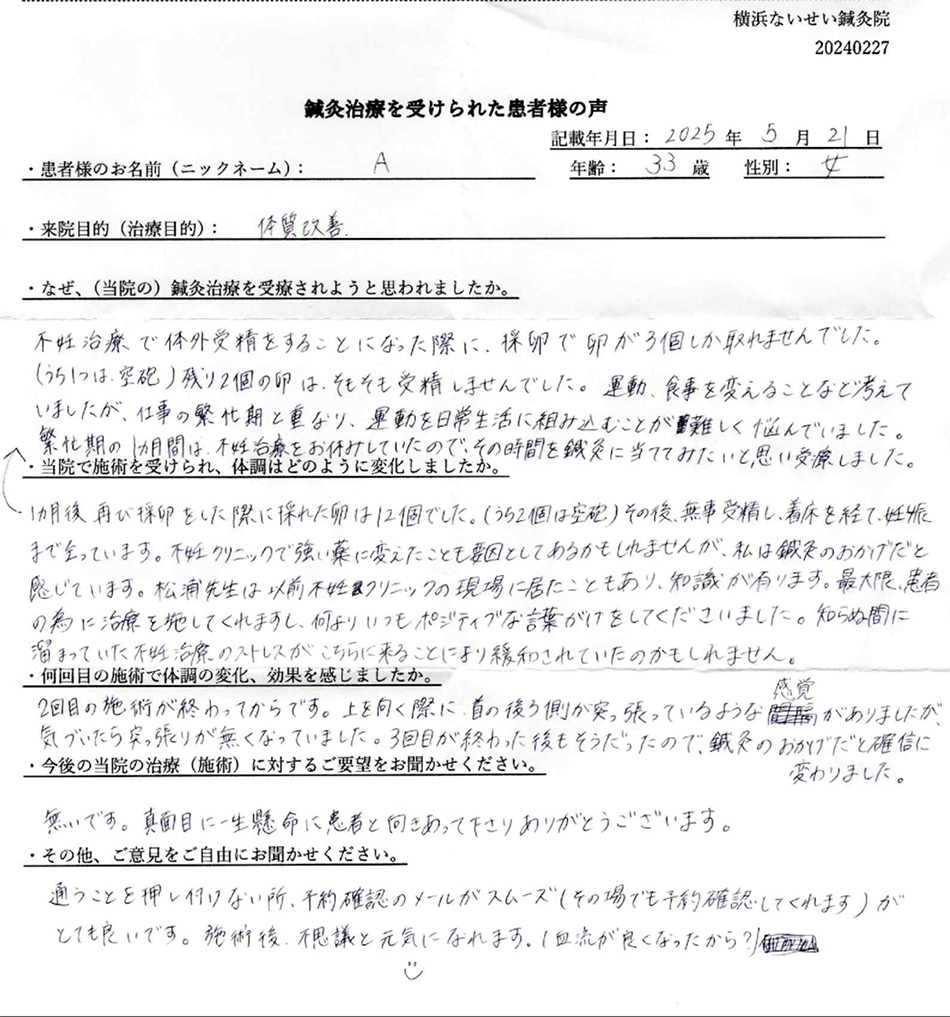 横浜ないせい鍼灸院
20240227
鍼灸治療を受けられた患者様の声
記載年月日：2025年 5月 21日
・患者様のお名前（ニックネーム）： A 年齢： 33 歳 性別： 女
・来院目的（治療目的）： 体質改善.
・なぜ、（当院の）鍼灸治療を受療されようと思われましたか。
不妊治療で体外受精をすることになった際に、採卵で卵が3個しか取れませんでした。
（うち1つは、空砲）残り2個の卵は、そもそも受精しませんでした。運動、食事を変えることなど考えて
いましたが、仕事の繁忙期と重なり、運動を日常生活に組み込むことが難しく悩んでいました。
繁忙期の1カ月間は、不妊治療をお休みしていたので、その時間を鍼灸に当ててみたいと思い受療しました。
・当院で施術を受けられ、体調はどのように変化しましたか。
1カ月後再び採卵をした際に採れた卵は12個でした。（うち2個は空砲）その後、無事受精し、着床を経て、妊娠
まで至っています。不妊クリニックで強い薬に変えたことも要因としてあるかもしれませんが、私は鍼灸のおかげだと
感じています。松浦先生は以前不妊クリニックの現場に居たこともあり、知識が有ります。最大限、患者
の為に治療を施してくれますし、何よりいつもポジティブな言葉がけをしてくださいました。知らぬ間に
溜まっていた不妊治療のストレスがこちらに来ることにより緩和されていたのかもしれません。
・何回目の施術で体調の変化、効果を感じましたか。
2回目の施術が終わってからです。上を向く際に、首の後ろ側が突っ張っているような感覚がありましたが、
気づいたら突っ張りが無くなっていました。3回目が終わった後もそうだったので、鍼灸のおかげだと確信に
変わりました。
・今後の当院の治療（施術）に対するご要望をお聞かせください。
無いです。真面目に一生懸命に患者と向きあって下さりありがとうございます。
・その他、ご意見をご自由にお聞かせください。
通うことを押し付けない所、予約確認のメールがスムーズ（その場でも予約確認してくれます）が
とても良いです。施術後、不思議と元気になれます。（血流が良くなったから？）